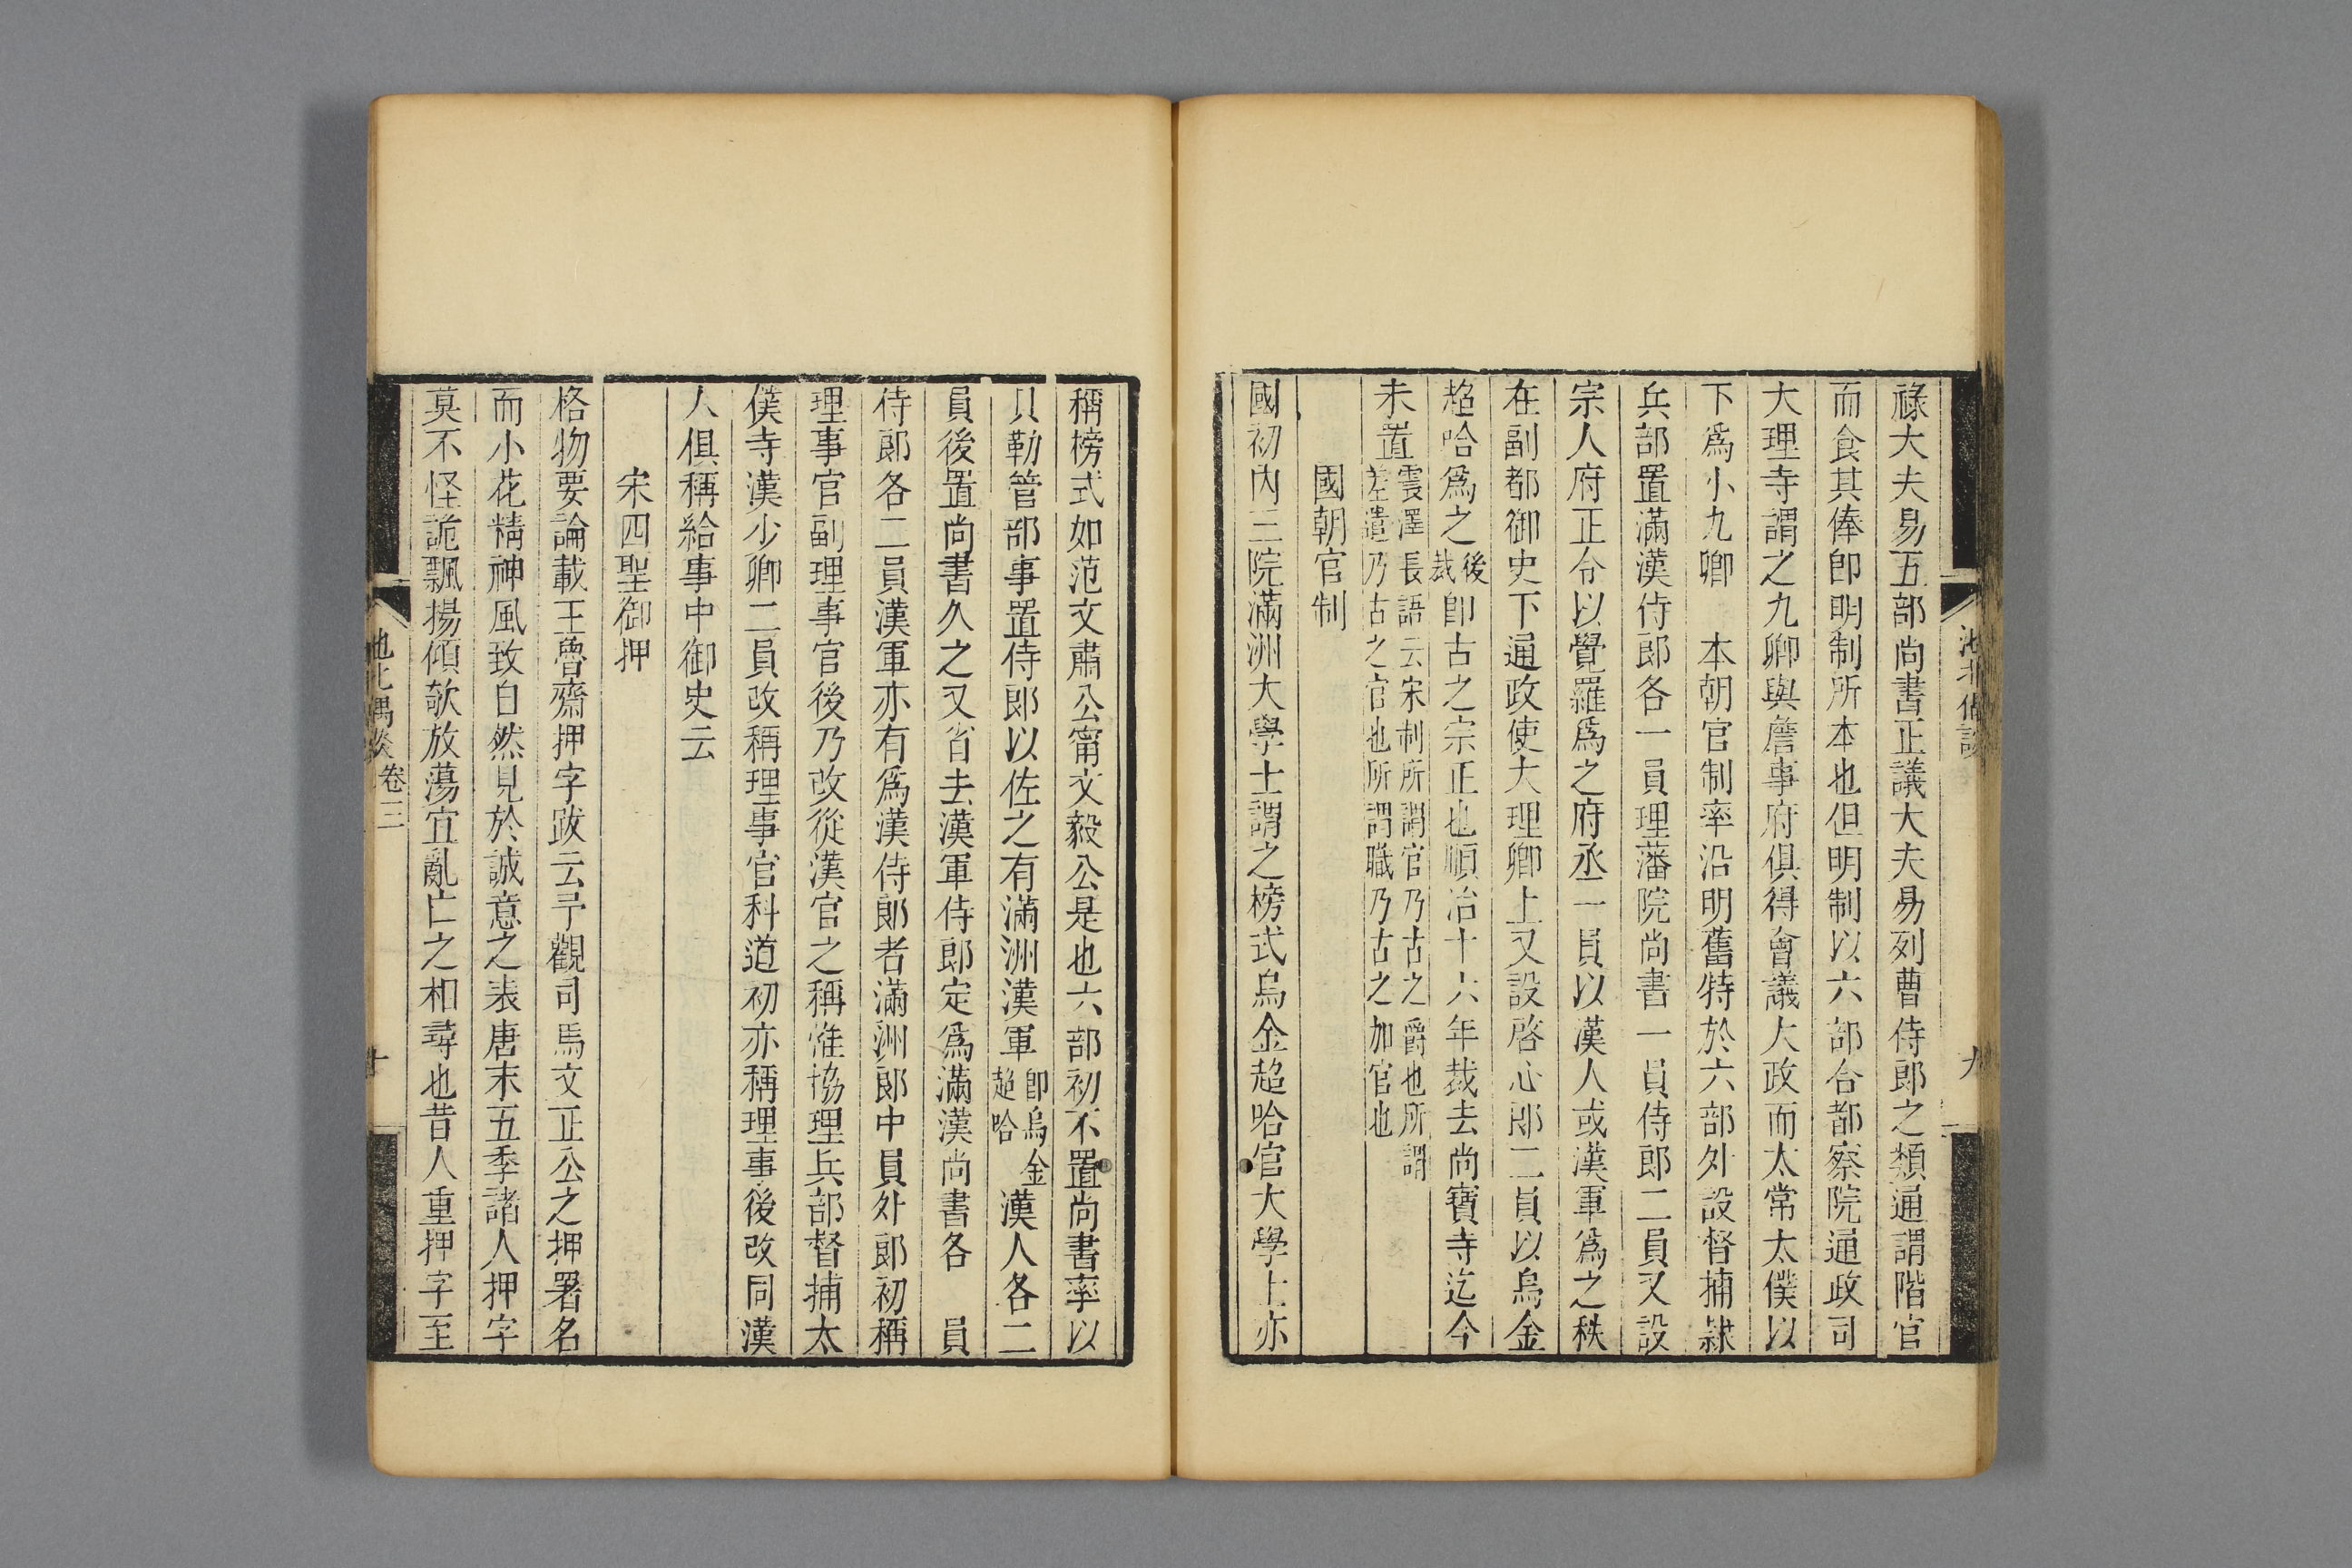 祿大夫易五部尚書正議大夫易列曹侍郎之類通謂階官
而食其俸卽明制所本也但明制以六部合都察院通政司
大理寺謂之九卿與詹事府俱得會議大政而太常太僕以
下爲小九卿　本朝官制率沿明舊特於六部外設督捕隷
兵部置滿漢侍郎各一員理藩院尚書一員侍郎二員又設
宗人府正令以覺羅爲之府丞一員以漢人或漢軍爲之秩
在副都御史下通政使大理卿上又設啓心郎二員以烏金
超哈爲之後裁卽古之宗正也順治十六年裁去尚寶寺迄今
未置霏澤長語云宋制所謂官乃古之爵也所謂
差遣乃古之官也所謂職乃古之加官也
國朝官制
國初內三院滿洲大學士謂之榜式烏金超哈官大學士亦
池北偶談
九
稱榜式如范文肅公甯文毅公是也六部初不置尚書率以
貝勒管部事置侍郎以佐之有滿洲漢軍卽烏金超哈漢人各二
員後置尚書久之又省去漢軍侍郎定爲滿漢尚書各　員
侍郎各二員漢軍亦有爲漢侍郎者滿洲郎中員外郎初稱
理事官副理事官後乃改從漢官之稱惟協理兵部督捕太
僕寺漢少卿二員改稱理事官科道初亦稱理事後改同漢
人俱稱給事中御史云
宋四聖御押
格物要論載王魯齋押字跋云予觀司馬文正公之押署名
而小花精神風致自然見於誠意之表唐末五季諸人押字
莫不怪詭飄揚傾欹放蕩宜亂亡之相尋也昔人重押字至
池北偶談　卷三
十